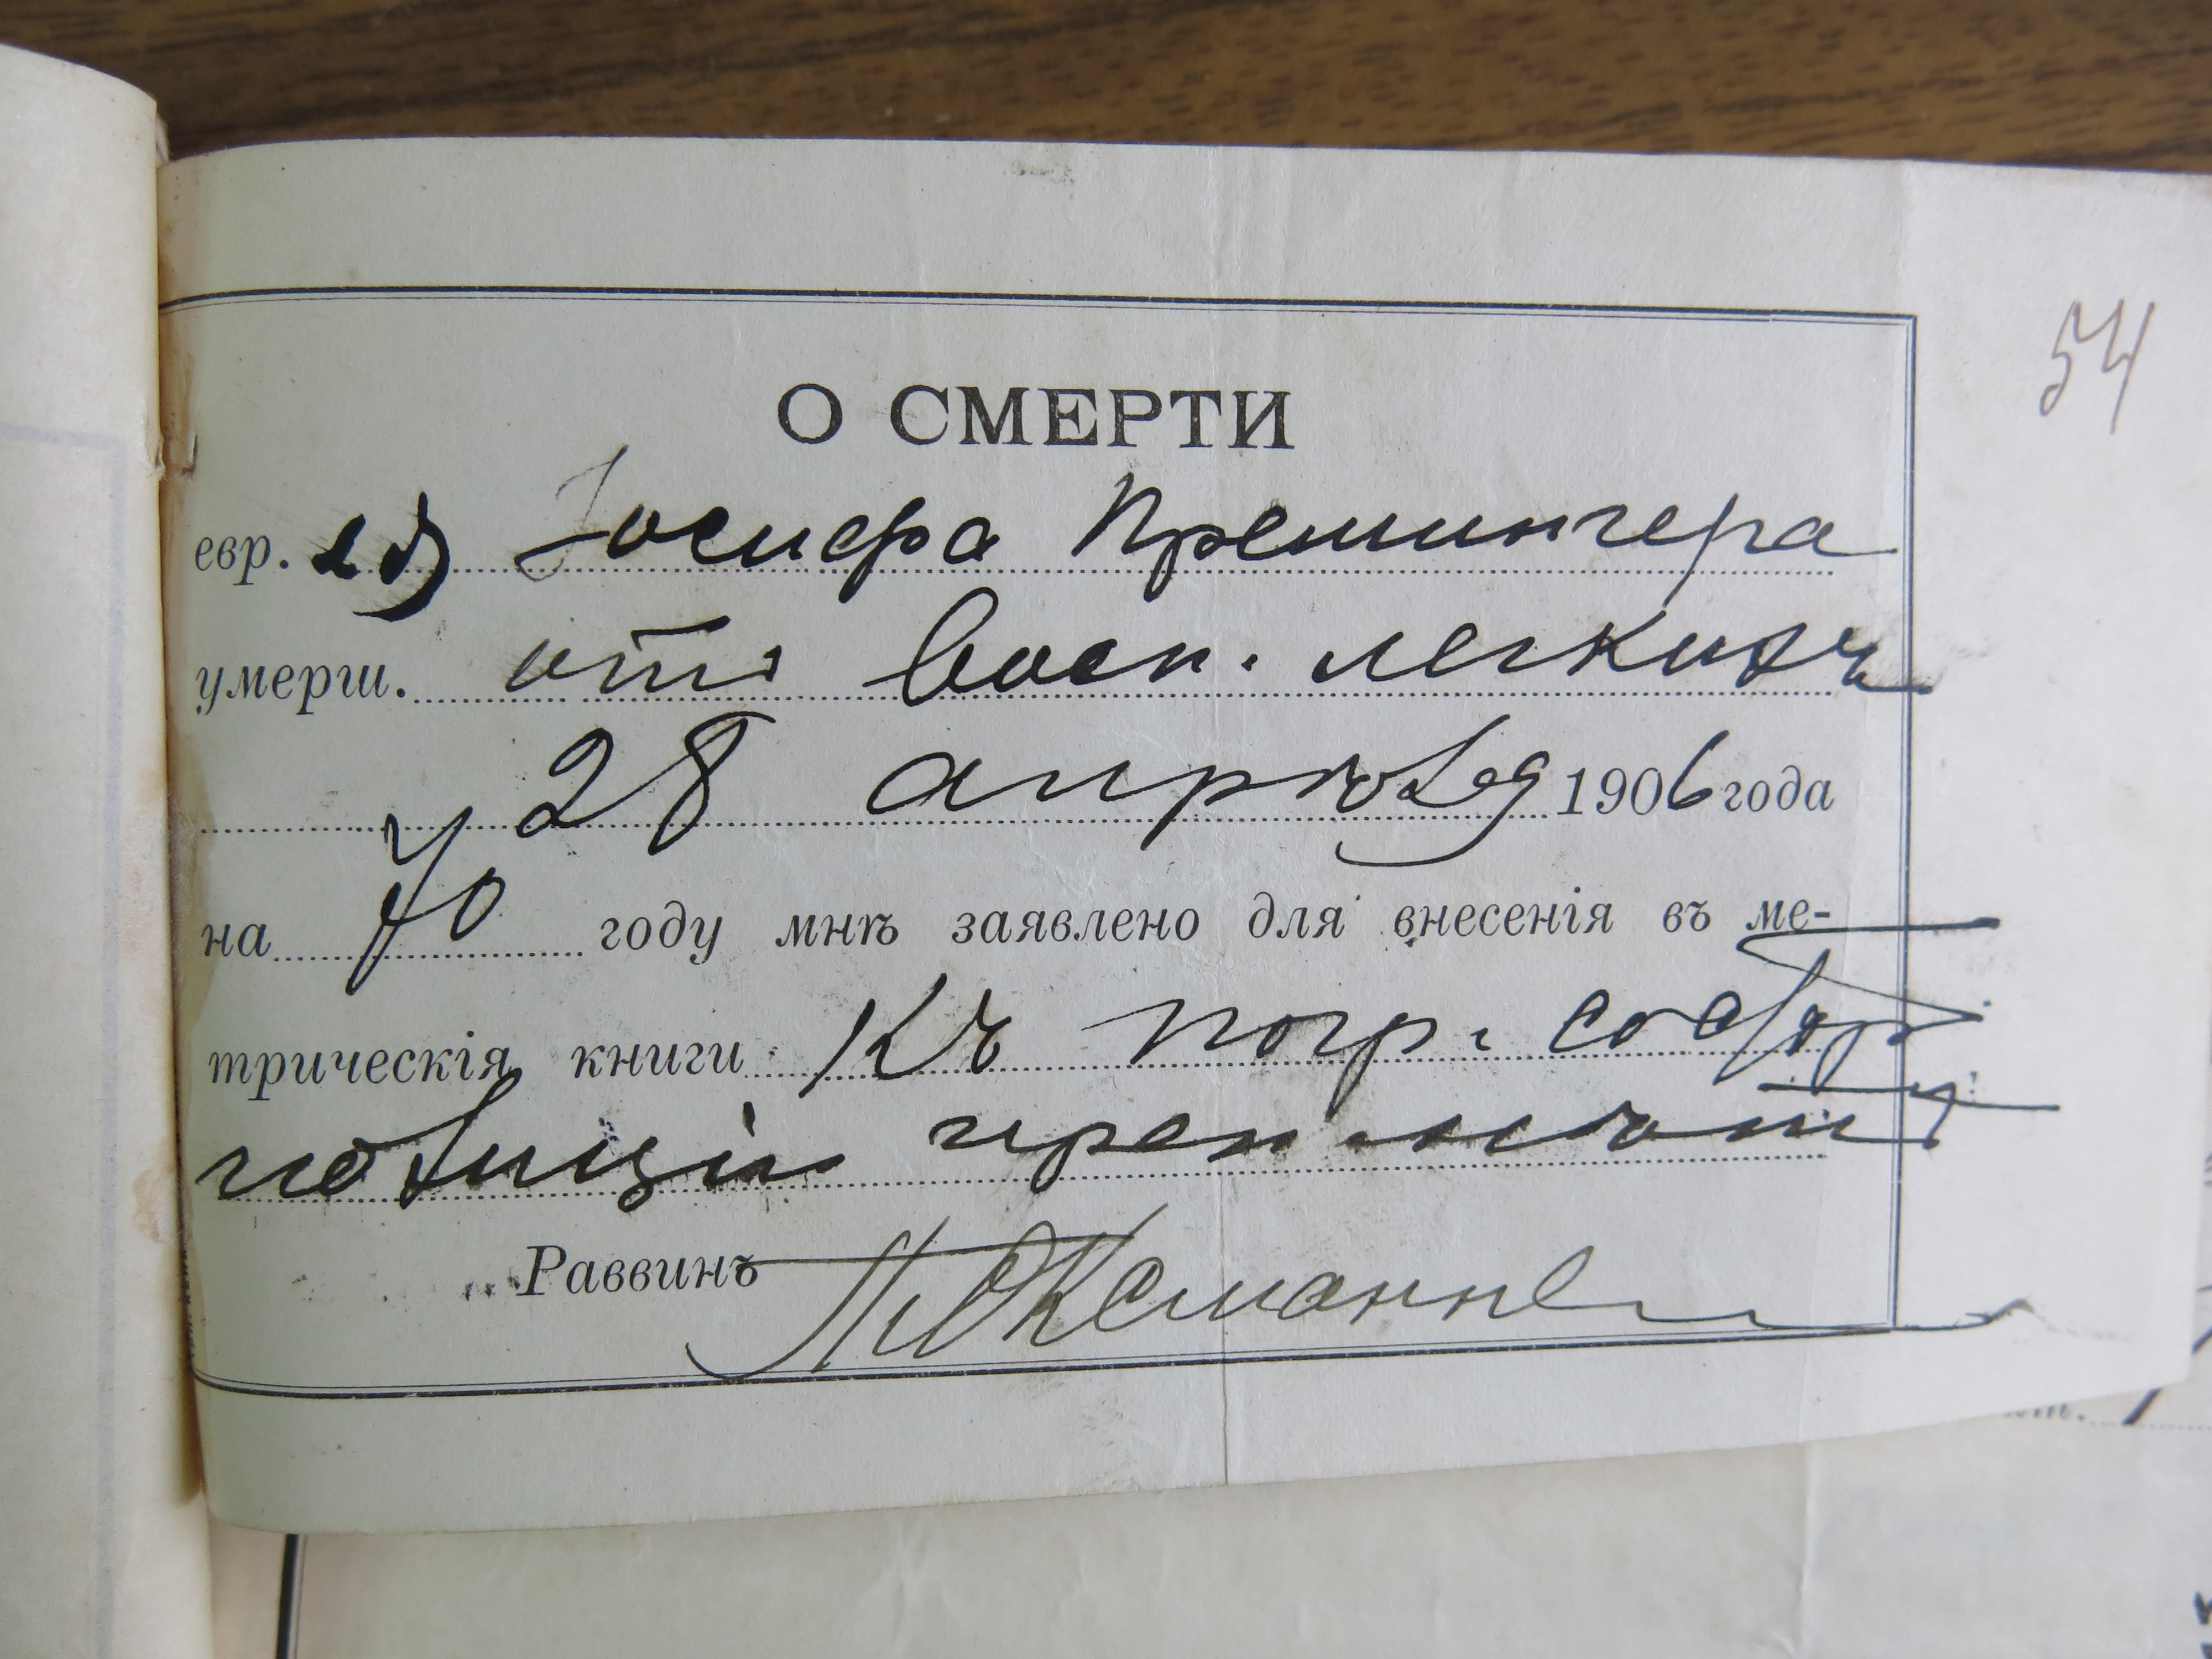 54
О СМЕРТИ
евр. ея Іосифа Премингера
умерш. отъ восп. легкихъ
28 апрѣля 1906 года
на 70 году мнѣ заявлено для внесенія въ ме-
трическія книги. Къ погр. со стор
полиціи преп. нѣтъ
Раввинъ